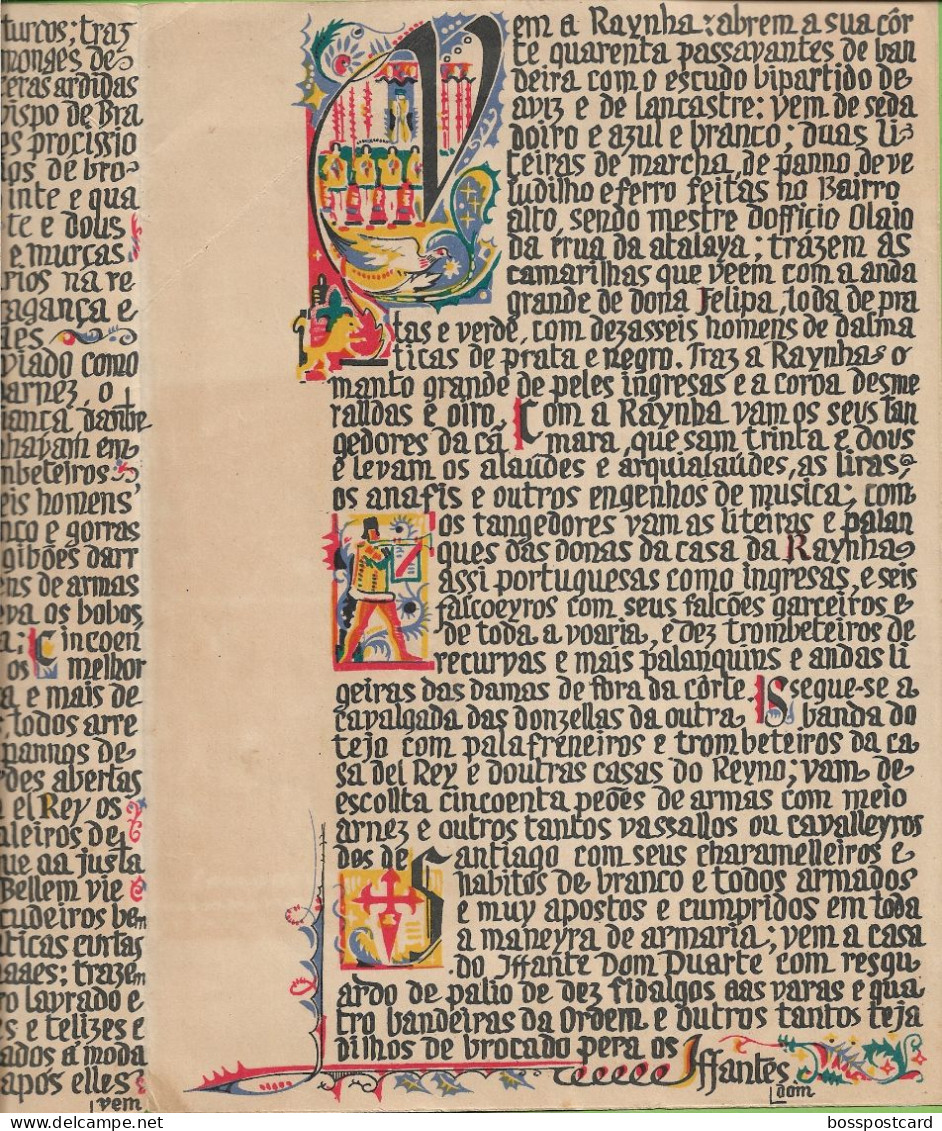 turcos; traz
monges de
ceras ardidas
bispo de Bra
es procissio
de bro-
inte e qua
te e dous
e murças
rios na re
agança e
des
viado como
arnez, o
iança dante
havam em
mbeteiros
eis homens
nco e gorras
gibões darr
ens de armas
eva os bobos
a; Cincoen
os melhor
a e mais de
s todos arre
pannos de
des abertas
el Rey os
aleiros de
ue aa justa
Bellem vie
cudeiros bem
aticas curtas
traaes; trazem
ro lavrado e
s e telizes e
ados á moda
após elles
vem
Vem a Raynha: abrem a sua côr
te quarenta passavantes de ban
deira com o escudo bipartido de
aviz e de lancastre: vem de seda
doiro e azul e branco; duas li-
teiras de marcha, de panno de ve
ludilho e ferro feitas no Bairro
alto, sendo mestre dofficio Olaio
da rrua da atalaya; trázem as
camarilhas que veem con a anda
grande de dona Felipa, toda de pra
tas e verde, com dezasseis homens de dalma
ticas de prata e negro. Traz a Raynha o
manto grande de peles ingresas e a coroa desme
raldas e oiro. Com a Raynha vam os seus tan
gedores da câmara, que sam trinta e dous
e levam os alaúdes e arquialaúdes, as liras,
os anafis e outros engenhos de musica; com
os tangedores vam as liteiras e palan
ques das donas da casa da Raynha
assi portuguesas como ingresas, e seis
falcoeyros com seus falcões garceiros e
de toda a voaria, e dez trombeteiros de
recurvas e mais palanquins e andas li
geiras das damas de fora da côrte. Issegue-se a
cavalgada das donzellas da outra banda do
tejo com palafreneiros e trombeteiros da ca
sa del Rey e doutras casas do Reyno; vam de
escolta cincoenta peões de armas com meio
arnez e outros tantos vassallos ou cavalleyros
dos de Santiago com seus charamelleiros e
habitos de branco e todos armados
e muy apostos e cumpridos em toda
a maneyra de armaria; vem a casa
do Iffante Dom Duarte com resgu
ardo de palio de dez fidalgos aas varas e qua
tro bandeiras da Ordem e outros tantos teja
dilhos de brocado pera os Iffantes
dom
bosspostcard